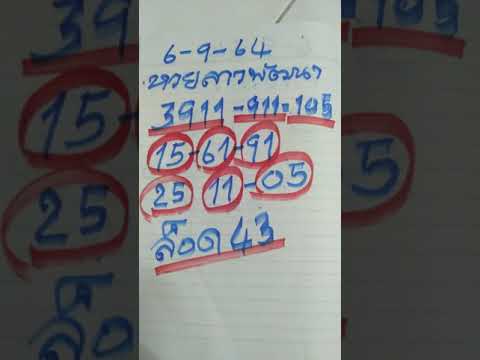 6-9-64
หวยลาวพัฒนา
3911-911-105
15-61-91
25 11-05
ล็อด 43